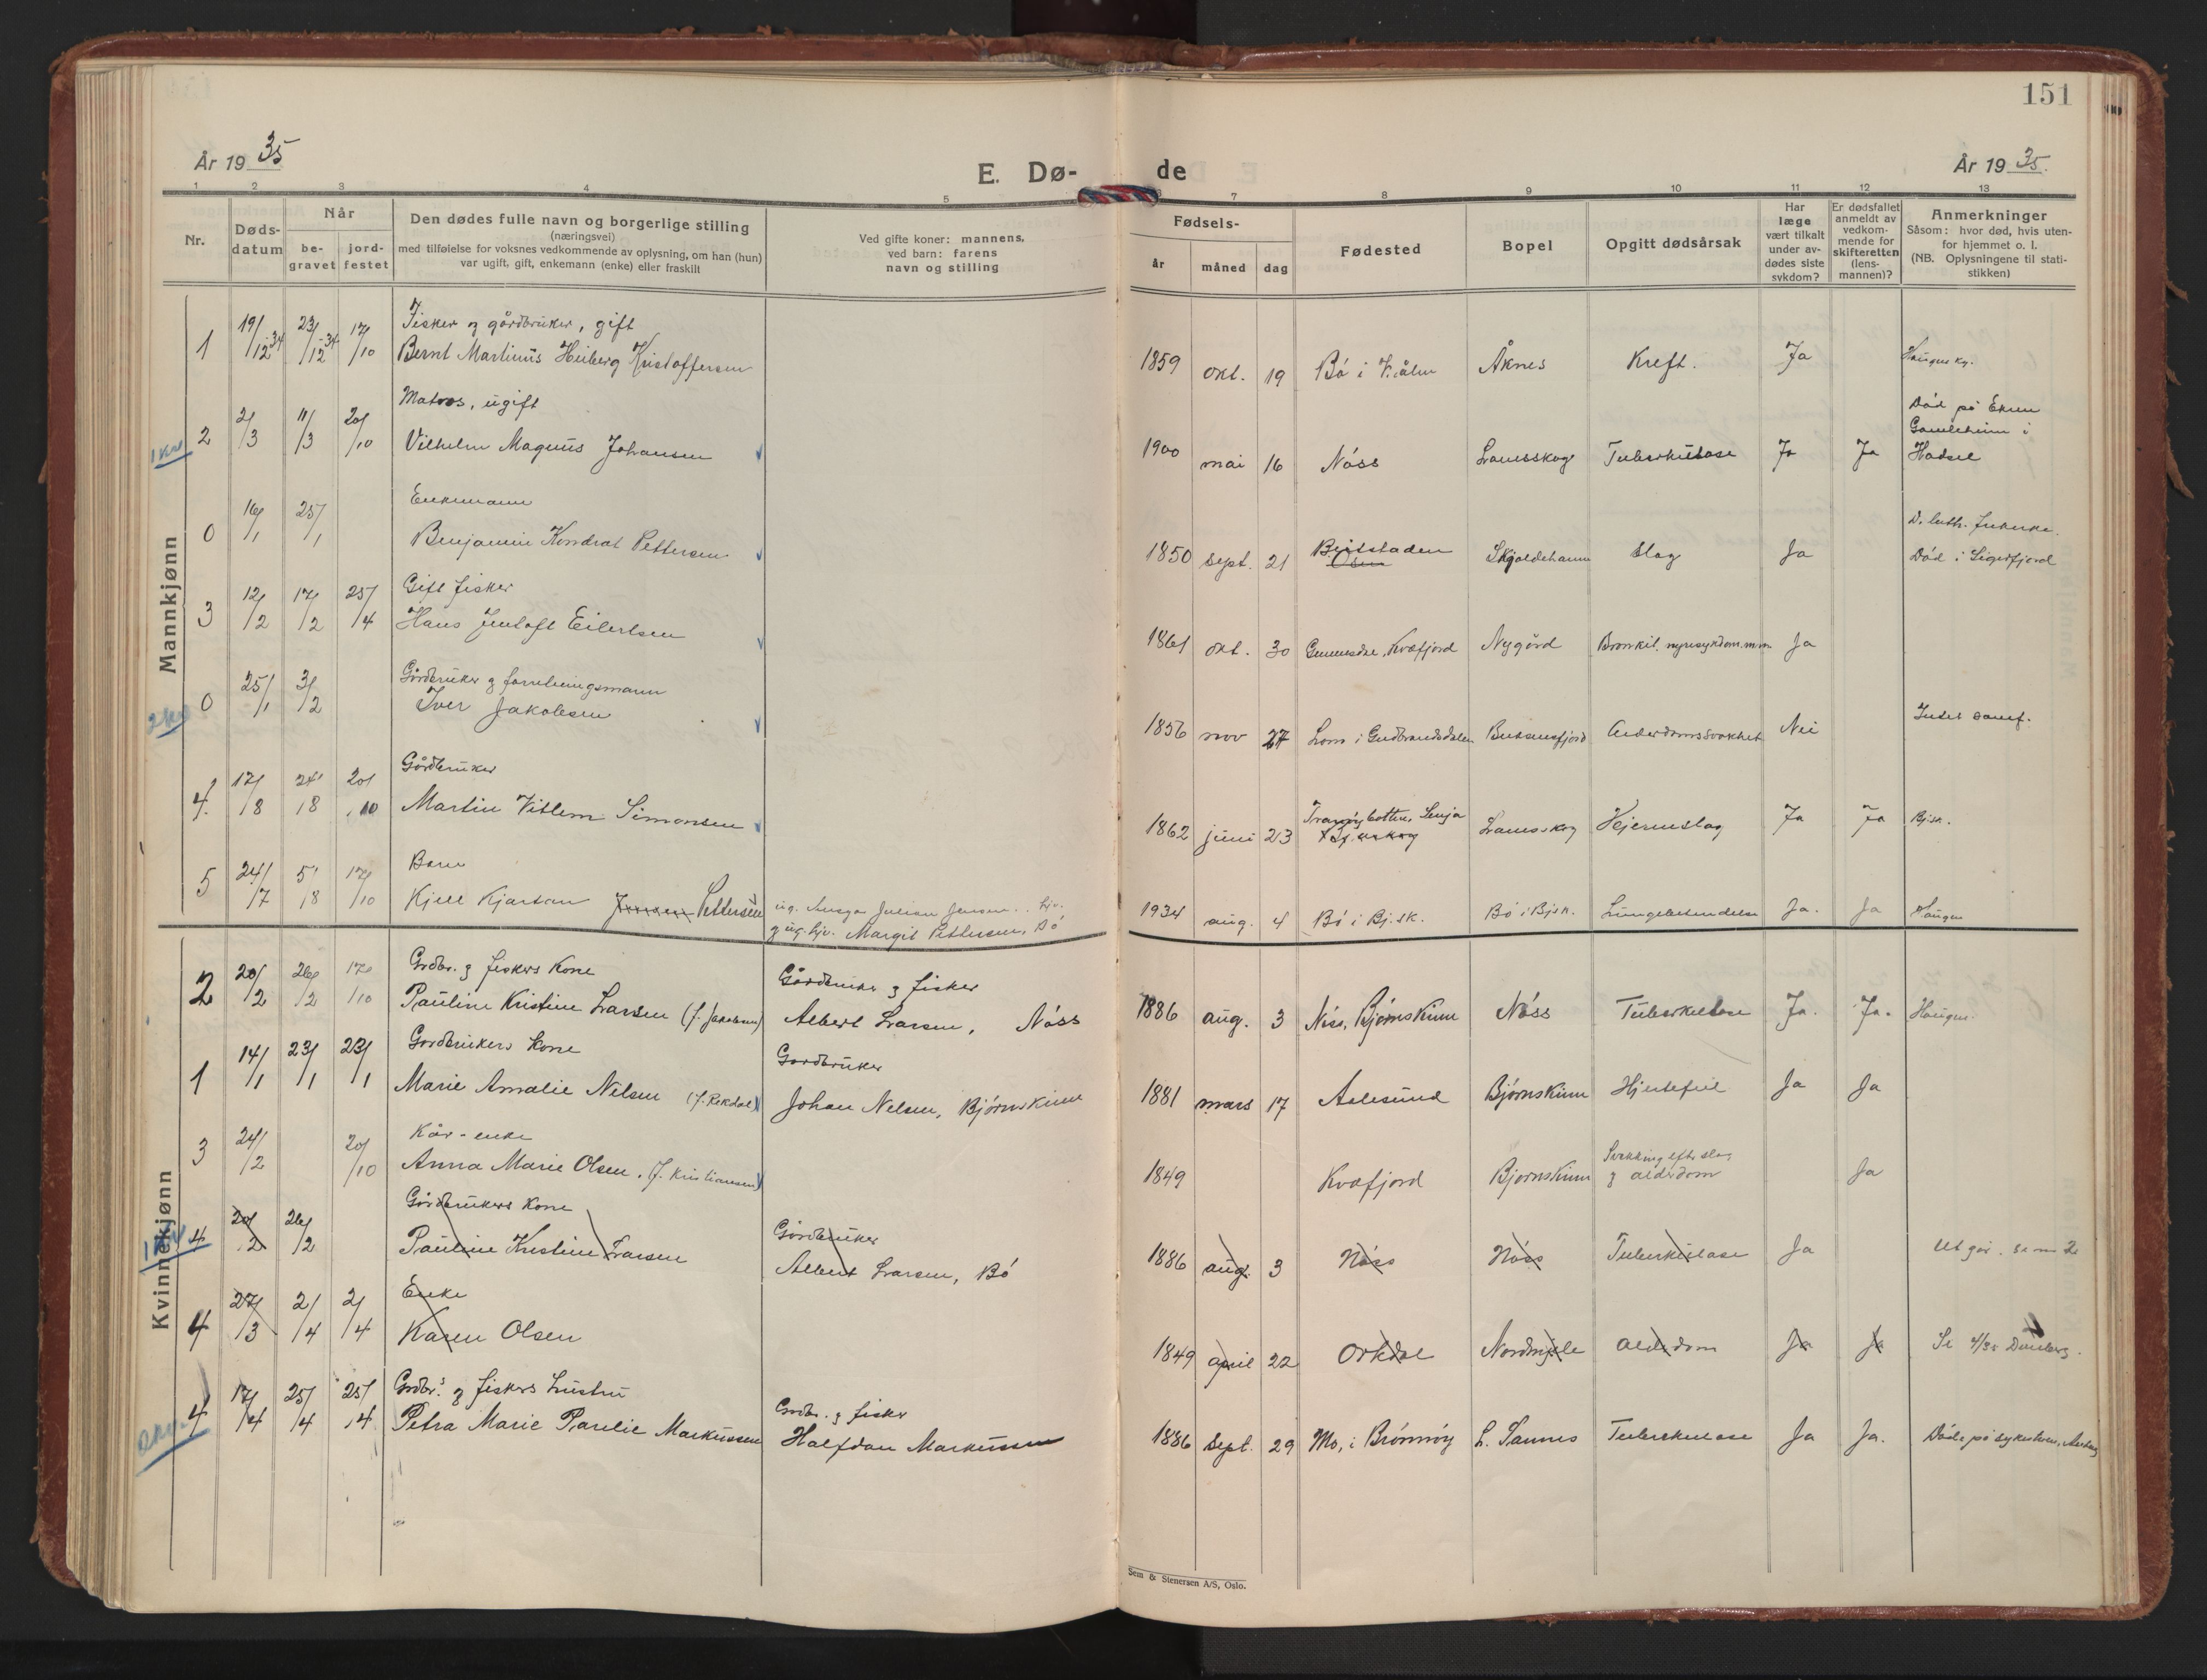 151
År 1935
E. Dø-
de
År 1935.
1 2 3 4 5
6 7 8 9 10 11 12 13
Nr.
Døds-
datum
Når
be-
gravet
jord-
festet
Den dødes fulle navn og borgerlige stilling
(næringsvei)
med tilføielse for voksnes vedkommende av oplysning, om han (hun)
var ugift, gift, enkemann (enke) eller fraskilt
Ved gifte koner: mannens,
ved barn: farens
navn og stilling
Fødsels-
år
måned
dag
Fødested
Bopel
Opgitt dødsårsak
Har
læge
vært tilkalt
under av-
dødes siste
sykdom?
Er dødsfallet
anmeldt av
vedkom-
mende for
skifteretten
(lens-
mannen)?
Anmerkninger
Såsom: hvor død, hvis uten-
for hjemmet o. l.
(NB. Oplysningene til stati-
stikken)
Mannkjønn
Fisker og gårdbruker, gift
1 19/12-34 23/12-34 17/10 Bernt Martinus Heiberg Kristoffersen 1859 okt. 19 Bö i Åknes Kreft. Ja
Matros, ugift
2 2/3 11/3 20/10 Vilhelm Magnus Johansen 1900 mai 16 Nöss Lanesskog Tuberkulose Ja Ja
Död på
Gamleheim i
Hadsel
Enkemann
0 16/1 25/1 Benjamin Kondrat Pettersen 1850 sept. 21 Skjoldehamn Slag Ja
Död i Sigerfjord
Gift fisker
3 12/2 17/2 25/4 Hans Jentoft Eilertsen 1861 okt. 30 Kvæfjord Nygård Bronkit. nyresykdom m.m Ja
Gårdbruker og forreningsmann
0 25/1 3/2 Iver Jakobsen 1856 nov 27 Lom i Gudbrandsdalen Alderdomssvakhet Nei
Gårdbruker
4. 17/8 24/8 20/10 Martin Vitlem Simonsen 1862 juni 23 Senja Lanesskog Hjerneslag Ja Ja Bjsk.
Barn
5 24/7 5/8 17/10 Kjell Kjartan Jensen Pettersen
ug. Ansgar Julian Jensen
og ug. Margit Pettersen, Bö
1934 aug. 4 Bö i Bj.sk. Bö i Bjsk. Lungebetendelse Ja. Ja Haugnes
Kvinnekjønn
Grdbr. og fiskers kone
Gårdbruker og fisker
2 20/2 26/2 17/10 Pauline Kristine Larsen (f. Jakobsen) Albert Larsen, Nöss 1886 aug. 3 Nöss, Björnskinn Nöss Tuberkulose Ja. Ja. Haugnes
Gardbrukers kone
Gardbruker
1 14/1 23/1 23/1 Marie Amalie Nilsen (f. Rekdal) Johan Nilsen, Björnskinn 1881 mars 17 Aalesund Björnskinn Hjertefeil Ja Ja
Kår-enke
3 24/2 20/10 Anna Marie Olsen. (f. Kristiansen) 1849 Kvæfjord Bjørnskinn
Svekking efter slag
og alderdom
Ja
Gårdbrukers kone
Gårdbruker
4 20/2 26/2 Pauline Kristine Larsen Albert Larsen, Bö 1886 aug. 3 Nöss Nöss Tuberkulose Ja Utgår. se nr 2
Enke
4 27/3 2/4 2/4 Karen Olsen 1849 april 22 Orkdal Nordmjele Alderdom Ja Ja
Grdbr.s og fiskers hustru
Grdbr. og fisker
4 17/4 25/4 25/4 Petra Marie Parelie Markussen Halfdan Markussen 1886 sept. 29 Mo, i Brönnöy L. Sannes Tuberkulose Ja Ja.
Sem & Stenersen A/S, Oslo.